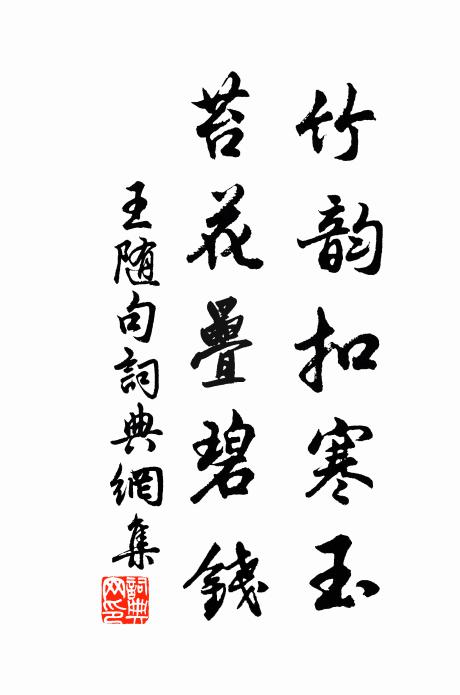 竹韵扣寒玉
苔花疊碧錢
王随句詞典網集
詞典网印